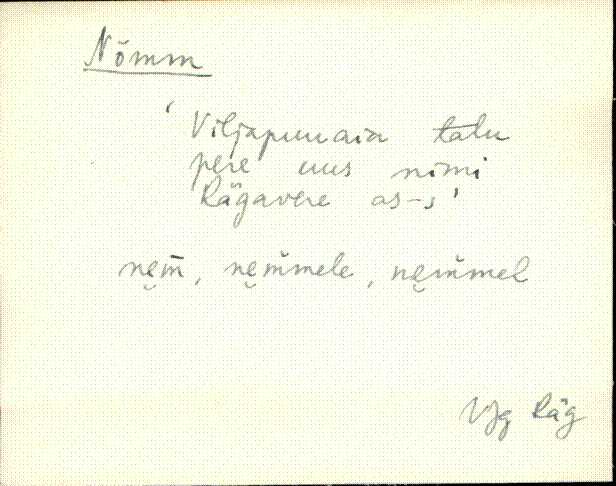 Nõmm
'Viljapuuaia talu
pere uus nimi
Rägavere as-s'
ne̮m̄, ne̮m̆mele, ne̮m̆mel
VJg Räg